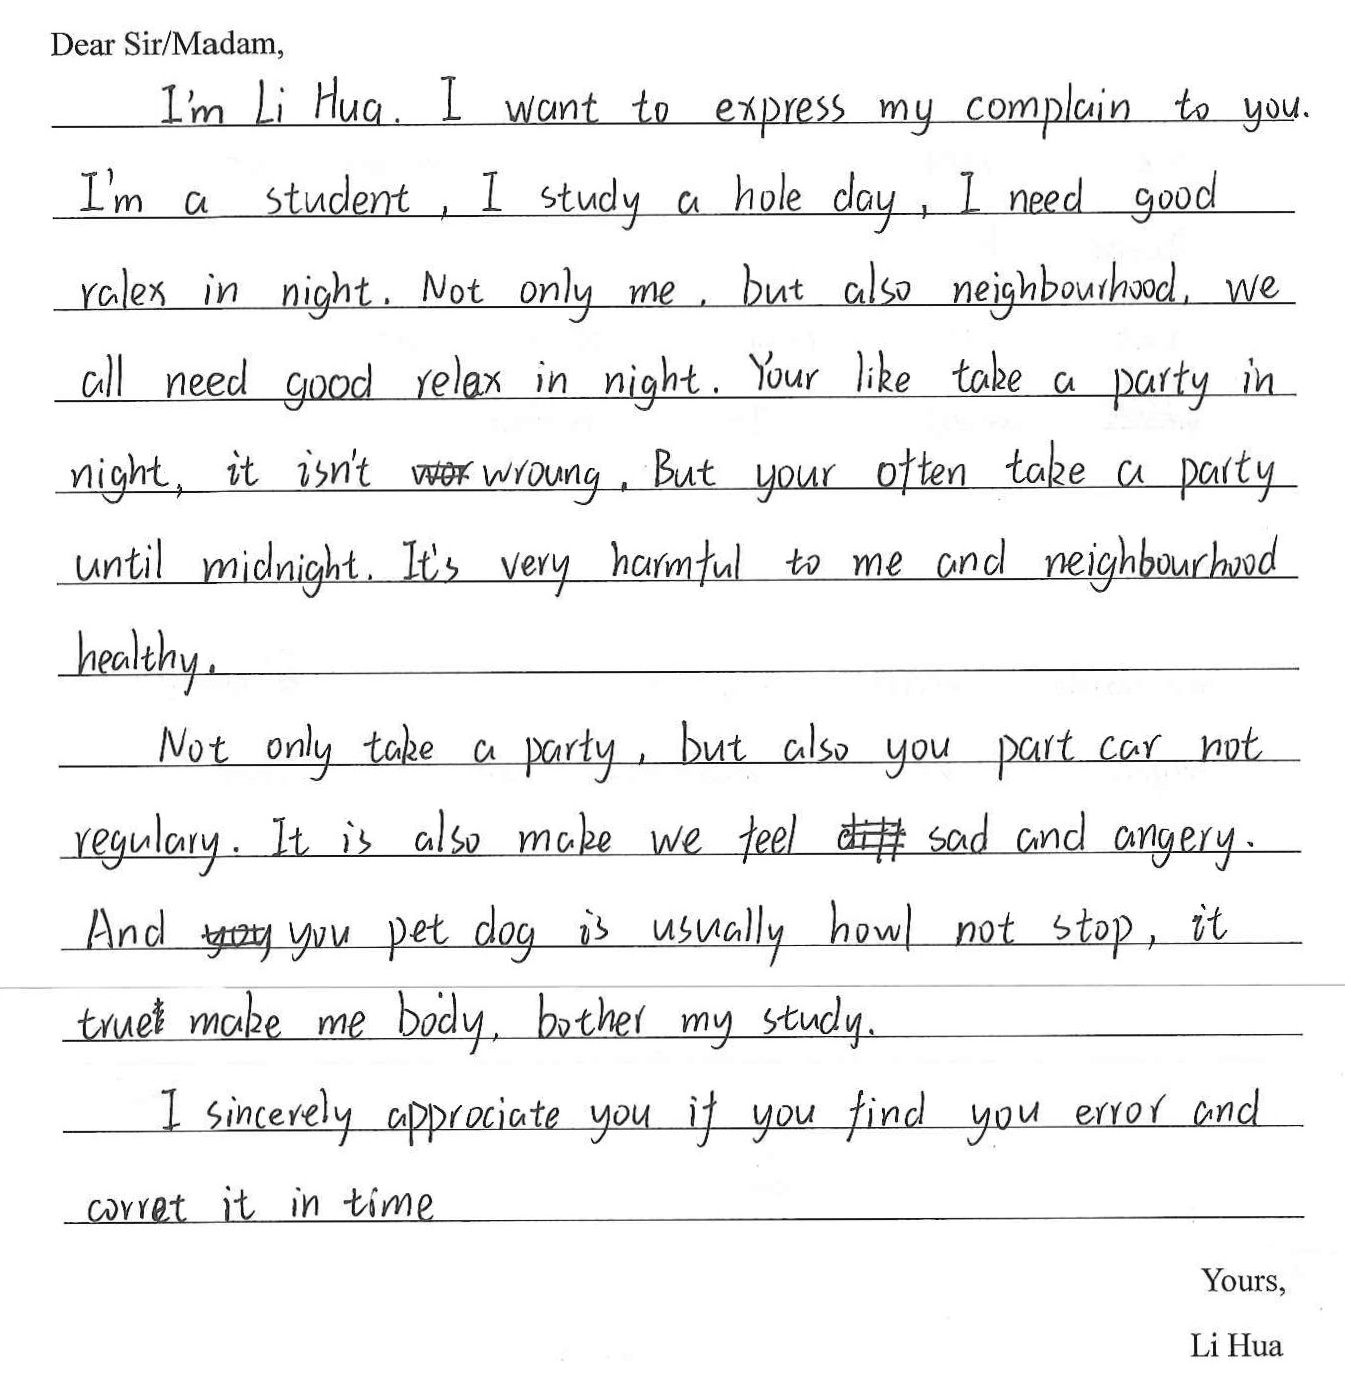 Dear Sir/Madam,
I'm Li Hua. I want to express my complain to you.
I'm a student, I study a hole day, I need good
ralex in night. Not only me, but also neighbourhood, we
all need good relex in night. Your like take a party in
night, it isn't wroung. But your often take a party
until midnight. It's very harmful to me and neighbourhood
healthy.
Not only take a party, but also you part car not
regulary. It is also make we feel sad and angery.
And you pet dog is usually howl not stop, it
true make me body, bother my study.
I sincerely approciate you if you find you error and
corret it in time
Yours,
Li Hua